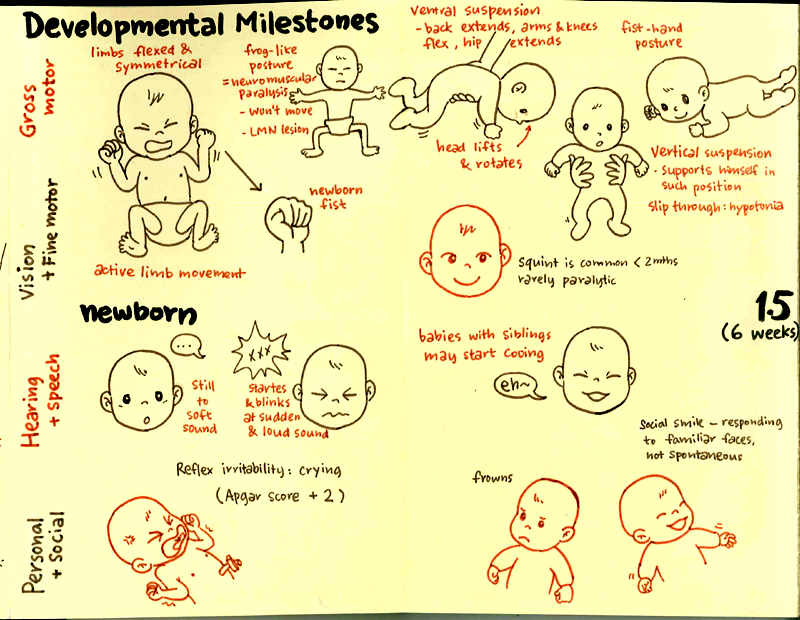 Developmental Milestones
Gross
motor
limbs flexed &
symmetrical
frog-like
posture
= neuromuscular
paralysis
- won't move
- LMN lesion
newborn
fist
active limb movement
ventral suspension
- back extends, arms & knees
flex, hip extends
head lifts
& rotates
fist-hand
posture
Vertical suspension
· Supports himself in
such position
slip through: hypotonia
Vision
+ Fine motor
Squint is common < 2mths
rarely paralytic
newborn
1.5
(6 weeks)
Hearing
+ speech
...
Still
to
soft
sound
xxx
startes
& blinks
at sudden
& loud sound
babies with siblings
may start cooing
eh~
Personal
+ Social
Reflex irritability: crying
(Apgar score + 2)
frowns
Social smile - responding
to familiar faces,
not spontaneous